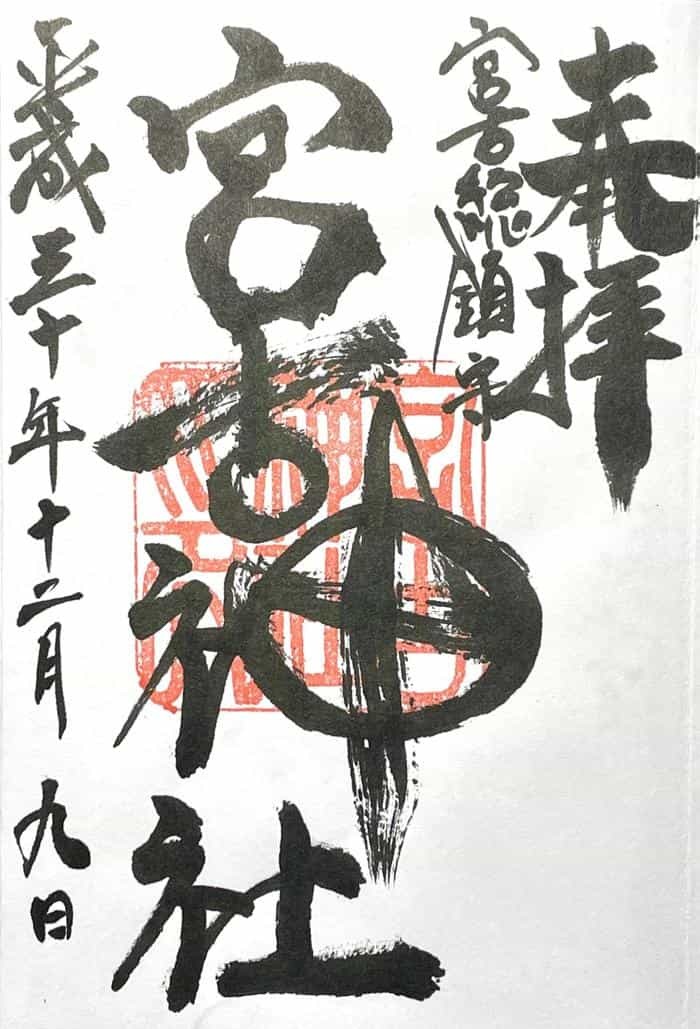 奉拝
宮古総鎮守
宮古神社
平成三十年十二月九日